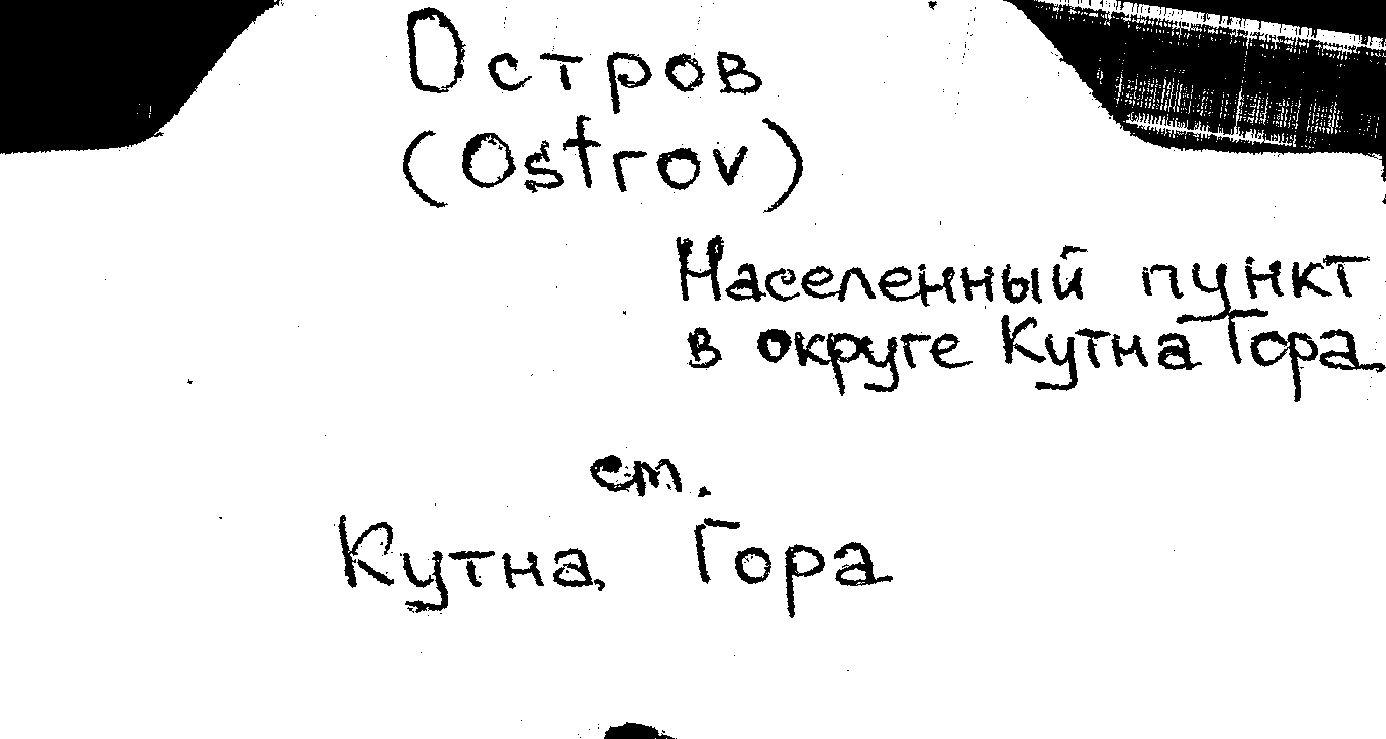 Остров
(Ostrov)
Населенный пункт
в округе Кутна Гора
ст.
Кутна Гора